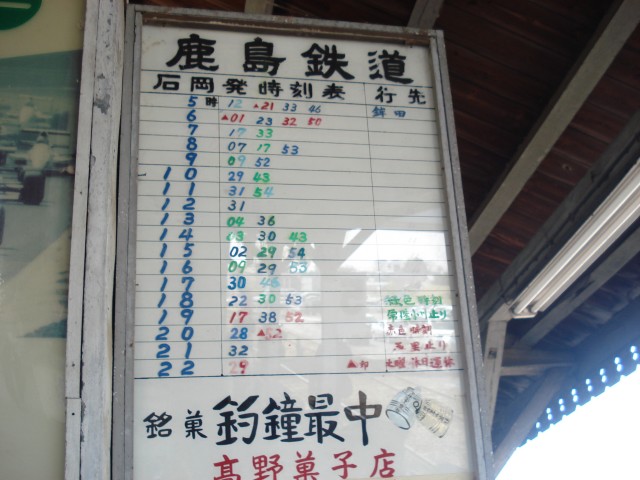 鹿島鉄道
石岡発時刻表 行先
5時 12 ▲21 33 46 鉾田
6 ▲01 23 32 50
7 17 33
8 07 17 53
9 09 52
10 29 43
11 31 54
12 31
13 04 36
14 03 30 43
15 02 29 54
16 09 29 53
17 30 46
18 22 30 53 緑色時刻
19 17 38 52 常陸小川止り
20 28 ▲52 赤色時刻
21 32 玉里止り
22 29 ▲印 土曜休日運休
銘菓 釣鐘最中
髙野菓子店